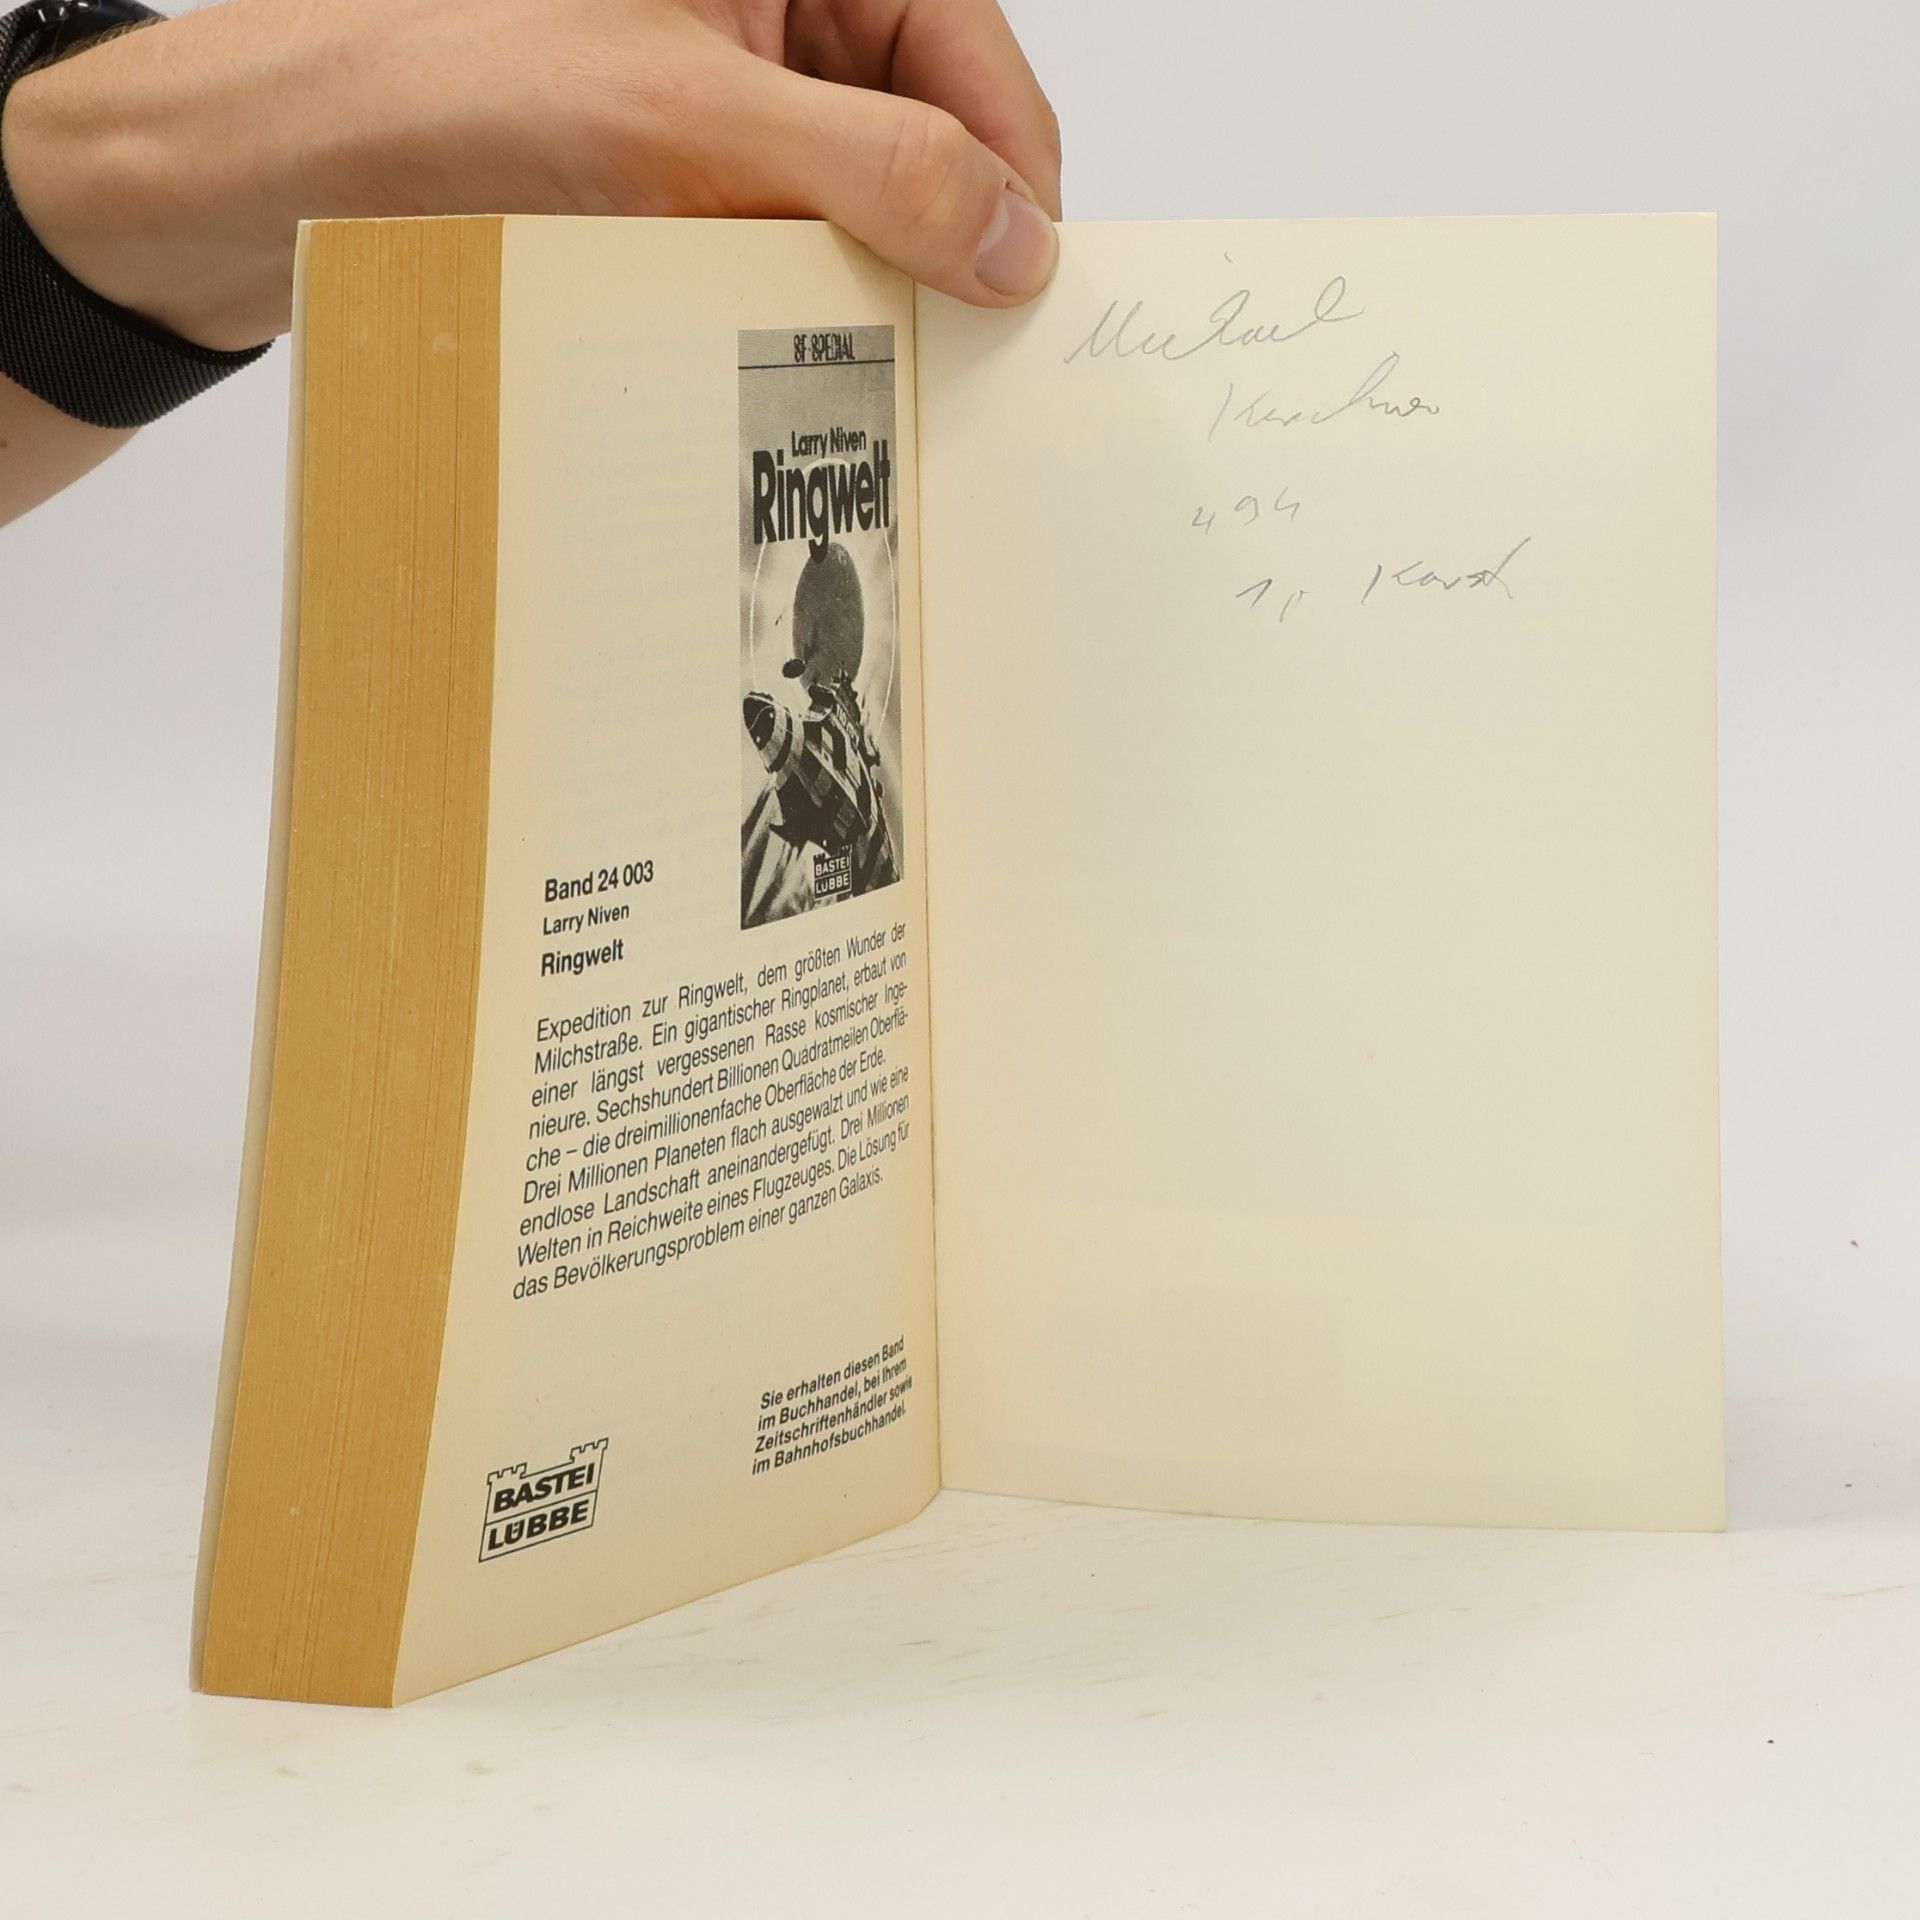 SF-SPECIAL
Larry Niven
Ringwelt
BASTEI
LÜBBE
Band 24 003
Larry Niven
Ringwelt
Expedition zur Ringwelt, dem größten Wunder der
Milchstraße. Ein gigantischer Ringplanet, erbaut von
einer längst vergessenen Rasse kosmischer Inge-
nieure. Sechshundert Billionen Quadratmeilen Oberflä-
che – die dreimillionenfache Oberfläche der Erde.
Drei Millionen Planeten flach ausgewalzt und wie eine
endlose Landschaft aneinandergefügt. Drei Millionen
Welten in Reichweite eines Flugzeuges. Die Lösung für
das Bevölkerungsproblem einer ganzen Galaxis.
Sie erhalten diesen Band
im Buchhandel, bei Ihrem
Zeitschriftenhändler sowie
im Bahnhofsbuchhandel.
BASTEI
LÜBBE
Michael
494